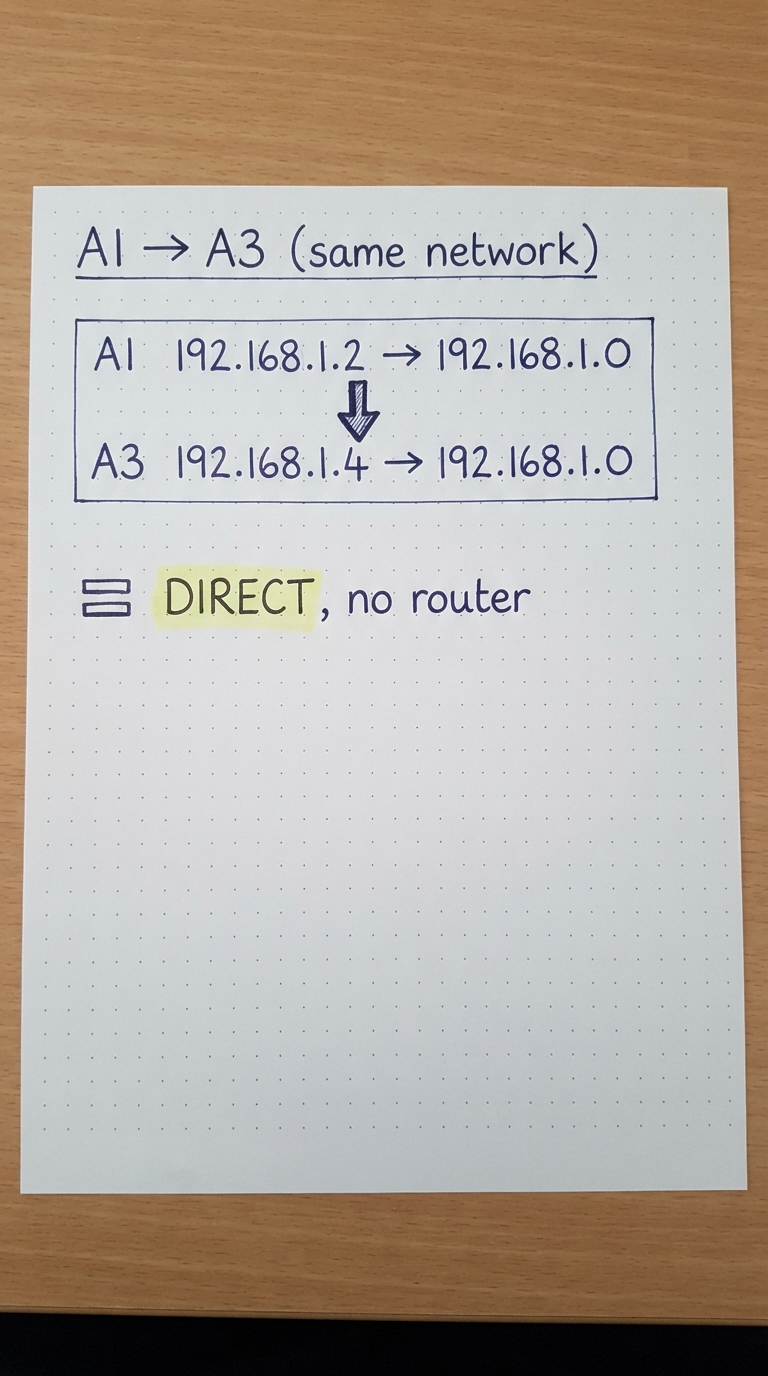 A1 → A3 (same network)
A1 192.168.1.2 → 192.168.1.0
↓
A3 192.168.1.4 → 192.168.1.0
= DIRECT, no router